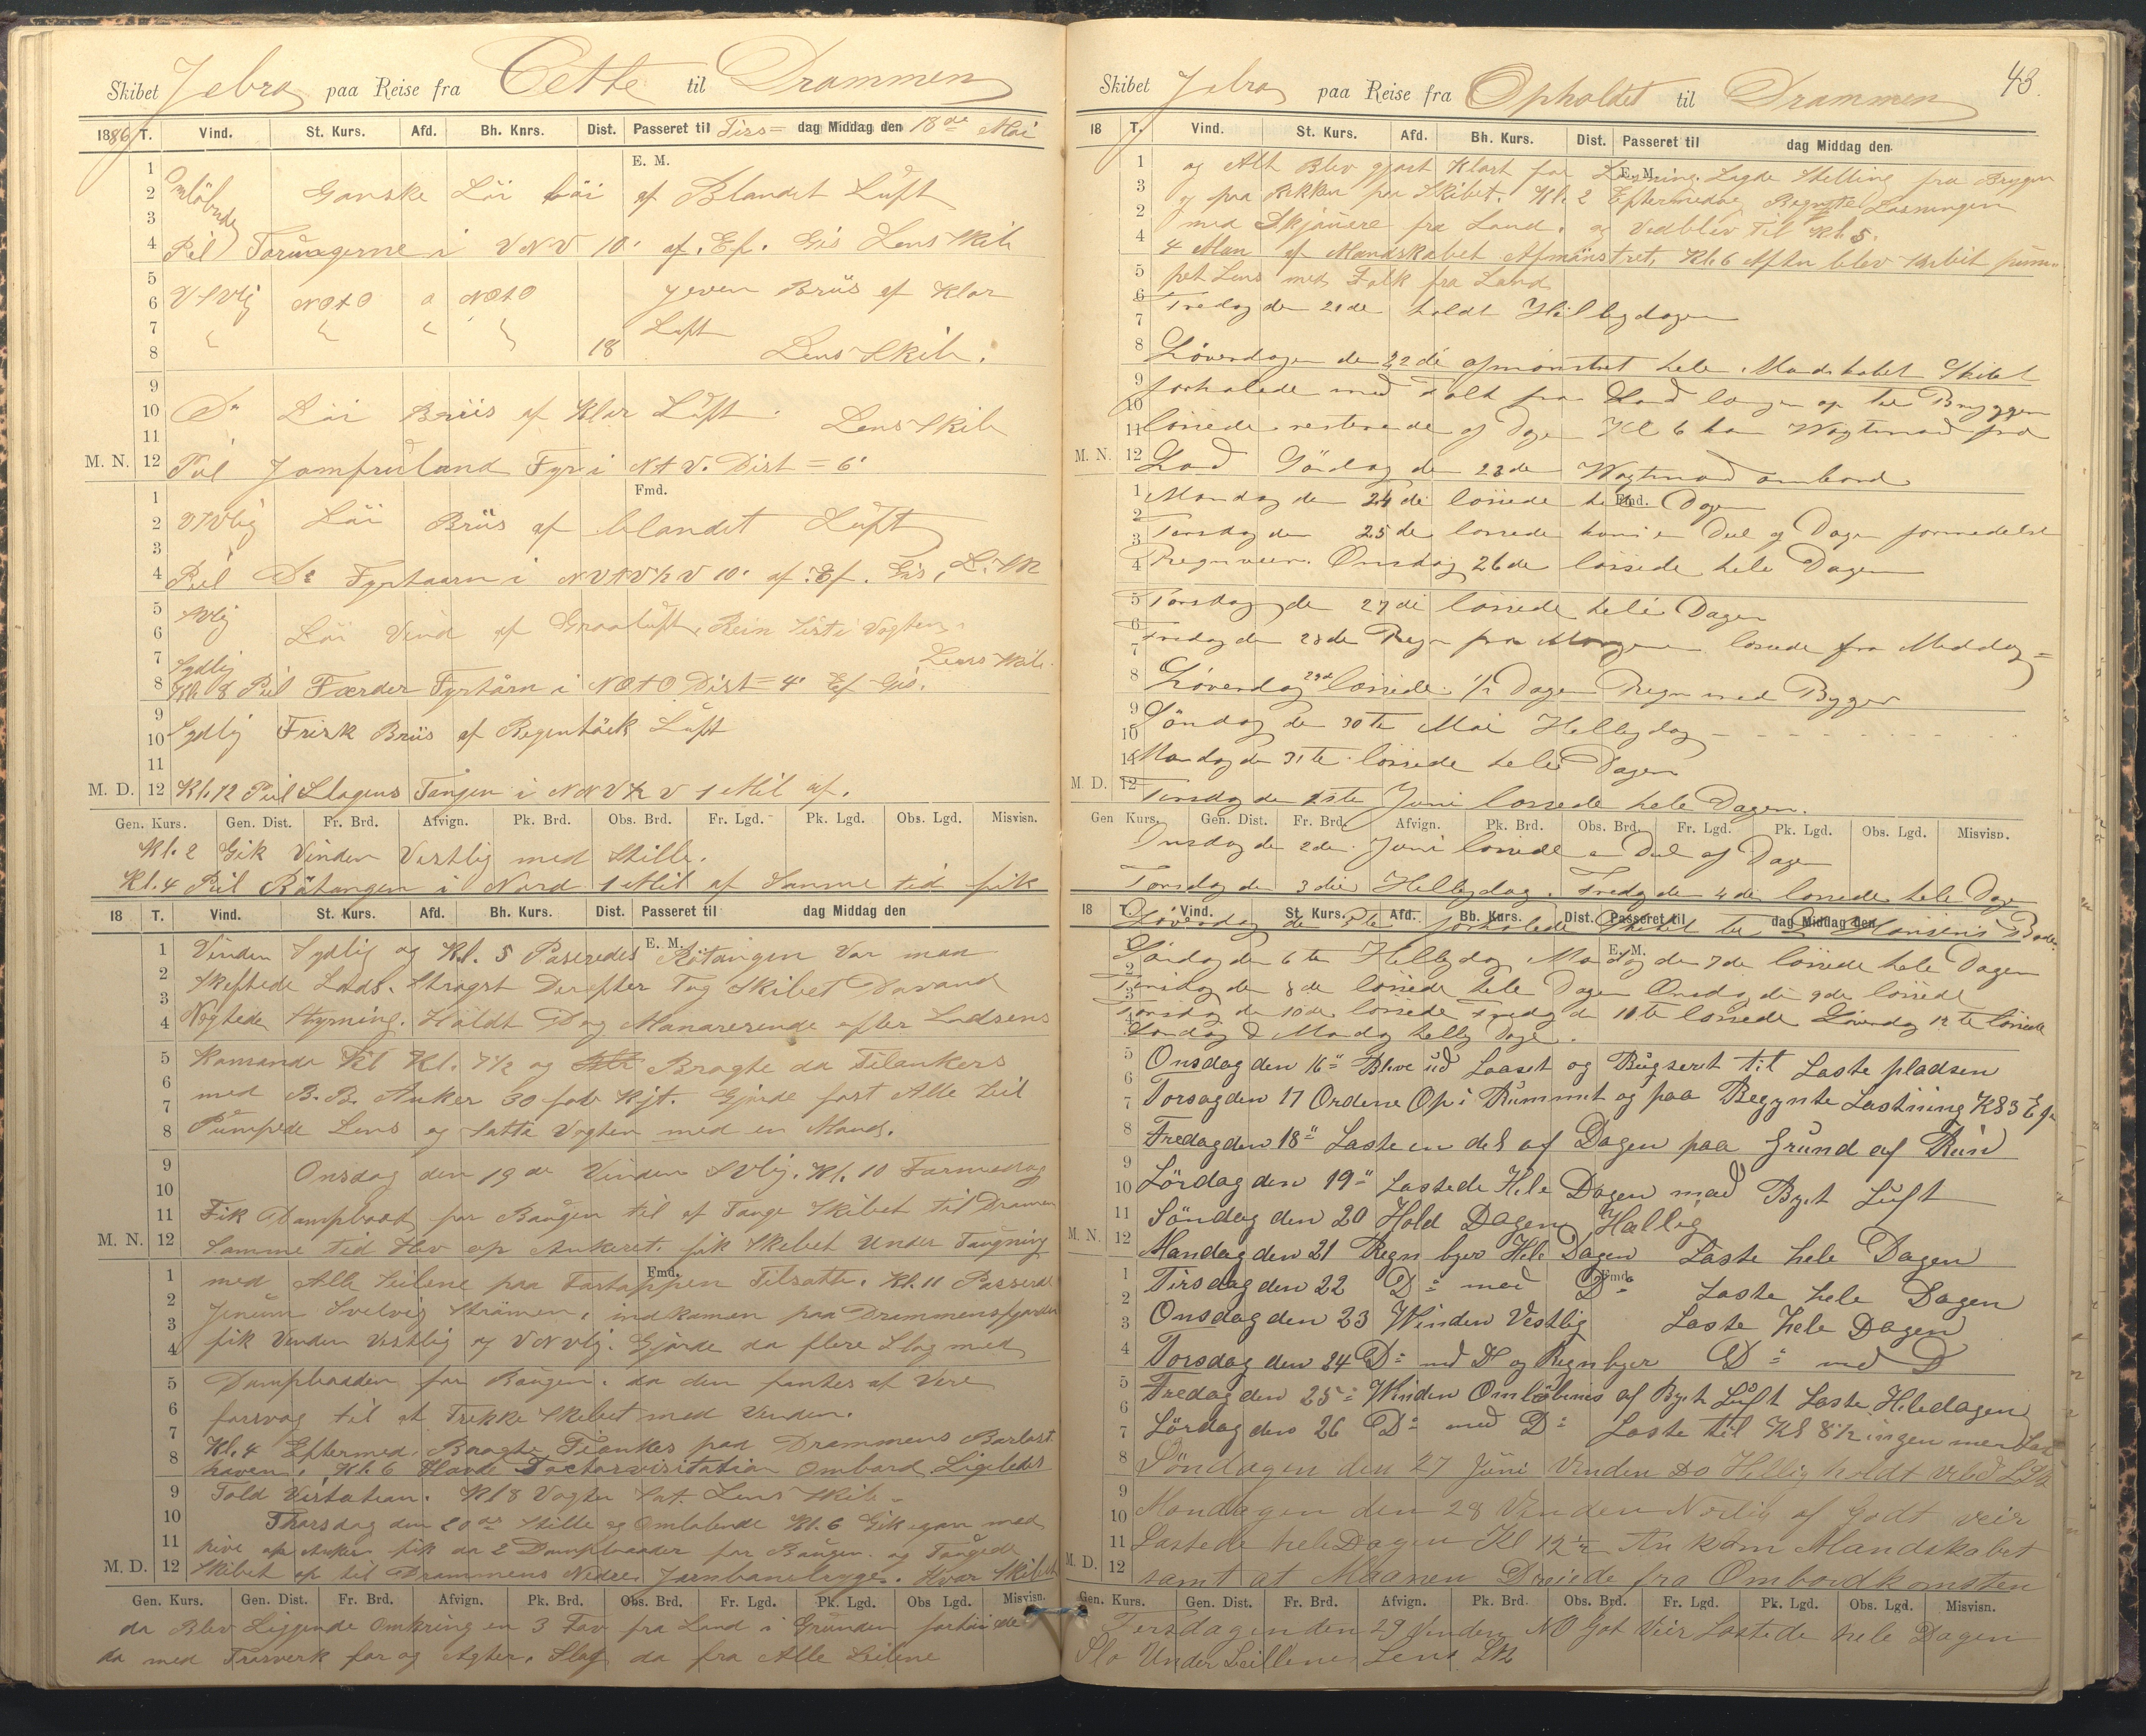 Skibet Jebra paa Reise fra Cette til Drammen
1886 T. Vind. St. Kurs. Afd. Bh. Knrs. Dist. Passeret til Tirs= dag Middag den 18de Mai
E. M.
1
2 Omløbnde Ganske Löi Löi af Blandet Luft
3
4 Peil Torungerne i VNV 10' af. Ef. Gis Lens Skib
5
6 VSVlig NOtO a NOtO Jeven Briis af Klar
7 Luft
8 18 Lens Skib.
9
10 Do Löi Briis af Klar Luft. Lens Skib
11
M. N. 12 Peil Jomfruland Fyr i NtV. Dist = 6'
Fmd.
1
2 VSVlig Löi Briis af blandet Luft
3
4 Peil Do Fyrtaarn i NVtV½V 10' af. Ef. Gis, L. Sk
5 SVlig
6 Löi Vind af Graaluft, Rein sist i Vagten,
7 Sydlig Lens Skib.
8 Kl. 8 Peil Færder Fyrtårn i NOtO Dist = 4' Ef Gis.
9
10 Sydlig Frisk Briis af Regentäik Luft
11
M. D. 12 Kl. 12 Peil Slagens Tangen i NNV½V 1 Mil af.
Gen. Kurs. Gen. Dist. Fr. Brd. Afvign. Pk. Brd. Obs. Brd. Fr. Lgd. Pk. Lgd. Obs. Lgd. Misvisn.
Kl. 2 Gik Vinden Vestlig med Stille.
Kl. 4 Peil Rötangen i Nord 1 Mil af Samme tid fik
18 T. Vind. St. Kurs. Afd. Bh. Kurs. Dist. Passeret til dag Middag den
E. M.
1 Vinden Sydlig og Kl. 5 Paseredes Rötangen Var man
2 Skeftede Lods. Stragst Derefter Tog Skibet Davand
3
4 Negtede Styrning. Holdt Dog Manarerende efter Lodsens
5 Komando til Kl. 7½ og Bragte da Tilankers
6
7 med B. B. Anker 30 fav Kjt. Gjorde fast Alle Seil
8 Pumpede Lens og Satte Vagten med en Mand.
9 Onsdag den 19de Vinden SVlig. Kl. 10 Formedag
10
11 Fik Dampbaad for Baugen til at Tauge Skibet til Dramen
M. N. 12 Samme tid Hev op Ankeret. fik Skibet Under Taugning
Fmd.
1 med Alle Seilene paa Fortoppen Tilsatte. Kl. 11 Passerede
2
3 Jenum Svelvig Strømen, indkomen paa Drammensfjorden
4 fik Vinden Vestlig og VNVlig. Gjorde da flere Slag med
5 Dampbaaden for Baugen. da den fantes at Vere
6 forsvag til at Trekke Skibet med Vinden.
7 Kl. 4 Eftermed. Bragte Tilankes paa Drammens Barlast
8 haven. Kl. 6 Havde Doctorvisitation Ombord, Ligeledes
9 Told Visitation. Kl 8 Vagten Sat. Lens Skib
10 Thorsdag den 20de Stille og Omlobende Kl. 6 Gik igan med
11 hive op Anker fik da 2 Dampbaader for Baugen. og Taugede
M. D. 12 Skibet op til Drammens Nedre Jernbanebrygge. Hvor Skibet
Gen. Kurs. Gen. Dist. Fr. Brd. Afvign. Pk. Brd. Obs. Brd. Fr. Lgd. Pk. Lgd. Obs Lgd. Misvisn.
da Blev Liggende Omkring en 3 Fav fra Land i Grunden fortöiede
da med Trosverk for og Agter. Slog da fra Alle Seilene
43.
Skibet Jebra paa Reise fra Opholdet til Drammen
18 T. Vind. St. Kurs. Afd. Bh. Kurs. Dist. Passeret til dag Middag den
E. M.
1 og Alt Blev gjort Klart for Losning. Lagde Stelling fra Bryggen
3 og paa Rekken paa Skibet. Kl. 2 Eftermedag Begynte Losningen
2 med Skjauere fra Land. og Vedblev Til Kl. 5.
4 4 Man af Mandskabet Afmönstret, Kl. 6 Aften blev Skibit pum-
5 pet Lens med Folk fra Land
6 Fredag den 21de holdt Helligdagen
7
8 Löverdagen den 22de afmönstret hele Mandskabet Skibet
9 forhalede med Folk fra Land længer op til Bryggen
10
11 lossede resterende af Dagen Kl 6 kom Vagtmand fra
M. N. 12 Land Söndag den 23de Wagtmand ombord
Fmd.
1 Mandag den 24de lossede hele Dagen
2
3 Tirsdag den 25de lossede kuns en Deel af Dagen formedelst
4 Regnveir. Onsdag 26de lossede hele Dagen
5 Torsdag den 27de lossede hele Dagen
6
7 Fredag den 28de Regn fra Morgenen lossede fra Meddag=
8 Löverdag 29de lossede ½ Dagen Regn med Bygger
9
10 Söndag den 30te Mai Helligdag
11 Mandag den 31te lossede hele Dagen
M. D. 12 Tirsdag den 1ste Juni lossede hele Dagen.
Gen Kurs. Gen. Dist. Fr. Brd. Afvign. Pk. Brd. Obs. Brd. Fr. Lgd. Pk. Lgd. Obs. Lgd. Misvisn.
Onsdag den 2den Juni lossede en Deel af Dagen
Torsdag den 3die Helligdag. Fredag den 4de lossede hele Dagen
18 T. Vind. St. Kurs. Afd. Bh. Kurs. Dist. Passeret til dag Middag den
Löverdag den 5te forhalede Skibet til Hansens
E. M.
Söndag den 6te Helligdag Mandag den 7de lossede hele Dagen
2
3 Tirsdag den 8de lossede hele Dagen Onsdag den 9de lossede
Torsdag den 10de lossede Fredag den 11te lossede Löverdag 12te lossede
4 Söndag & Mandag hellig Dage.
5 Onsdag den 16" Blive ud Laaset og Bugseret til Laste pladsen
6
7 Torsagden 17 Ordene Op i Rummet og paa Begynte Lastning Kl 3 E.
8 Fredag den 18" Laste en del af Dagen paa Grund af Rein
9
10 Lördag den 19" Lastede Hele Dagen med Byet Luft
11 Söndag den 20 Hold Dagen Hallig
M. N. 12 Mandag den 21 Regn byer Hele Dagen Laste hele Dagen
1 Tirsdag den 22 Do med Do Laste hele Dagen
Fmd.
2
3 Onsdag den 23 Winden Vestlig Laste hele Dagen
4 Torsdag den 24 Do med D og Regn byer Do med D
5
6 Fredag den 25 Winden Omlöbenis af Byet Luft Laste Heledagen
7 Lördag den 26 Do med Do Laste til Kl 8½ ingen mer Last
8 Söndagen den 27 Juni Vinden Do Hellig holdt
9
10 Mondagen den 28 Vinden Nordlig af Godt veir
11 Lastede hele Dagen Kl 12½ An kom Mandskabet
M. D. 12 samt at Maanen Dreiede fra Ombordkomsten
Gen. Kurs. Gen. Dist. Fr. Brd. Afvign. Pk. Brd. Obs. Brd. Fr. Lgd. Pk. Lgd. Obs. Lgd. Misvisn.
Tersdagen den 29 Vinden NO Got Veir Lastede hele Dagen
Slo Under Seillene Lens Sk